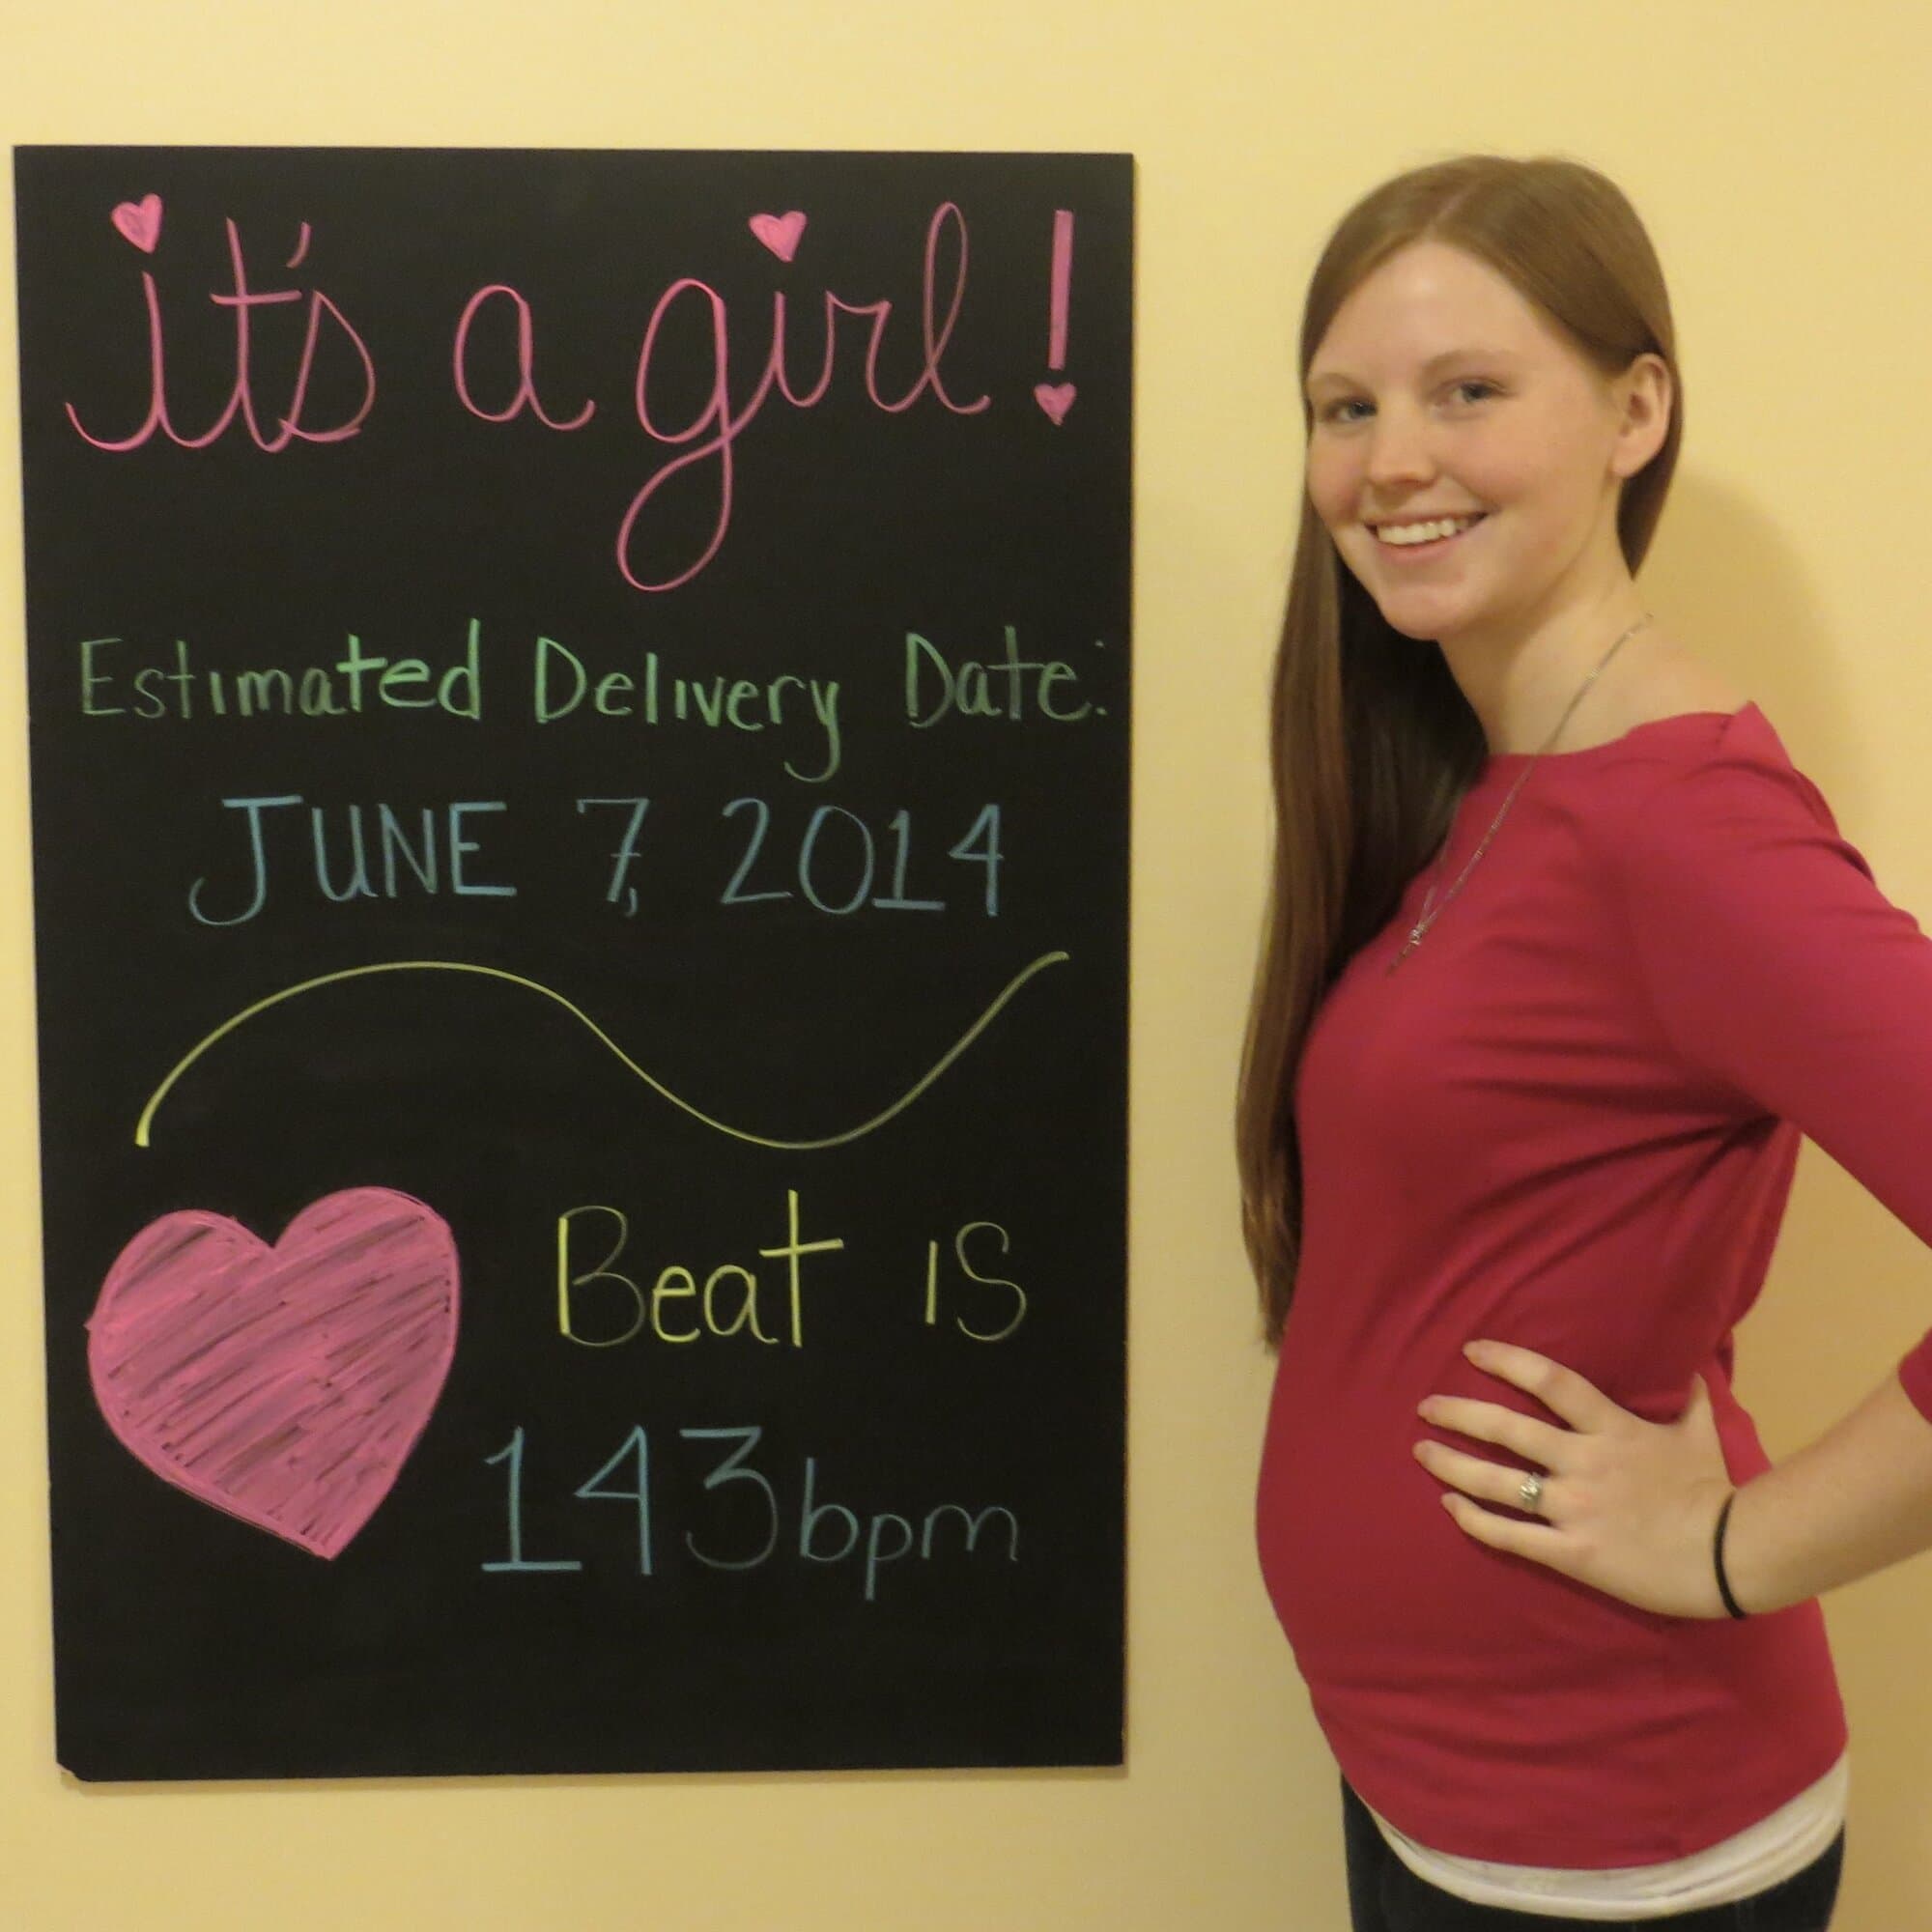 it's a girl!
Estimated Delivery Date:
JUNE 7, 2014
Beat is
143bpm